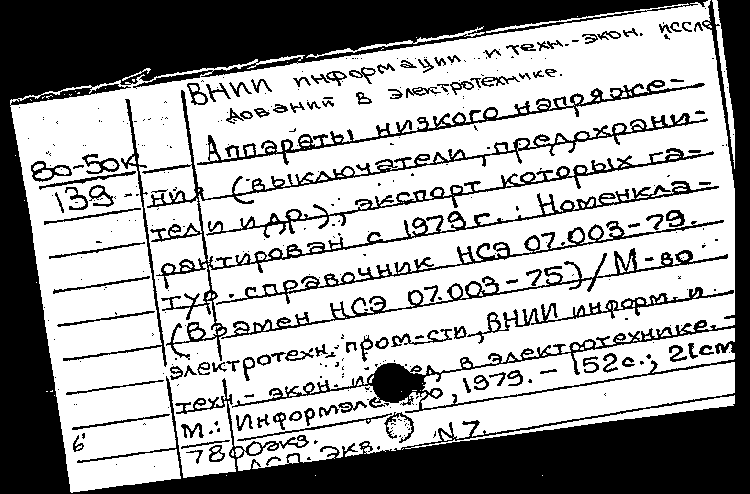 ВНИИ информации и техн.-экон. иссле-
дований в электротехнике.
80-50к
139
Аппараты низкого напряже-
ния (выключатели, предохрани-
тели и др.), экспорт которых га-
рантирован с 1979г.: Номенкла-
тур. справочник НСЭ 07.003-79.
(Взамен НСЭ 07.003-75) / М-во
электротехн. пром-сти, ВНИИ информ. и
техн.- экон. в электротехнике. -
М.: 1979. - 152с.; 21см
7800экз.
6
ДСП: экв. N 7.